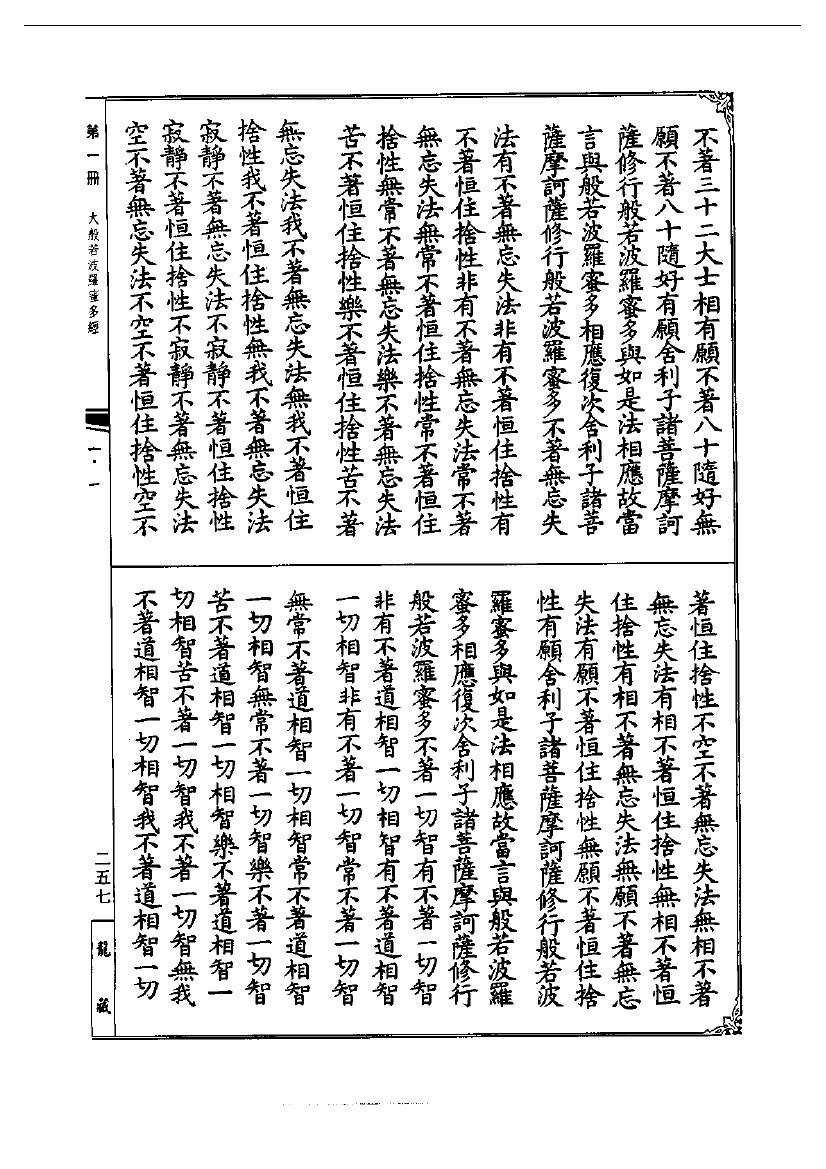 不著三十二大士相有願不著八十隨好無
願不著八十隨好有願舍利子諸菩薩摩訶
薩修行般若波羅蜜多與如是法相應故當
言與般若波羅蜜多相應復次舍利子諸菩
薩摩訶薩修行般若波羅蜜多不著無忘失
法有不著無忘失法非有不著恒住捨性有
不著恒住捨性非有不著無忘失法常不著
無忘失法無常不著恒住捨性常不著恒住
捨性無常不著無忘失法樂不著無忘失法
苦不著恒住捨性樂不著恒住捨性苦不著
無忘失法我不著無忘失法無我不著恒住
捨性我不著恒住捨性無我不著無忘失法
寂靜不著無忘失法不寂靜不著恒住捨性
寂靜不著恒住捨性不寂靜不著無忘失法
空不著無忘失法不空不著恒住捨性空不
著恒住捨性不空不著無忘失法無相不著
無忘失法有相不著恒住捨性無相不著恒
住捨性有相不著無忘失法無願不著無忘
失法有願不著恒住捨性無願不著恒住捨
性有願舍利子諸菩薩摩訶薩修行般若波
羅蜜多與如是法相應故當言與般若波羅
蜜多相應復次舍利子諸菩薩摩訶薩修行
般若波羅蜜多不著一切智有不著一切智
非有不著道相智一切相智有不著道相智
一切相智非有不著一切智常不著一切智
無常不著道相智一切相智常不著道相智
一切相智無常不著一切智樂不著一切智
苦不著道相智一切相智樂不著道相智一
切相智苦不著一切智我不著一切智無我
不著道相智一切相智我不著道相智一切
第一冊 大般若波羅蜜多經
一·一
二五七
龍藏